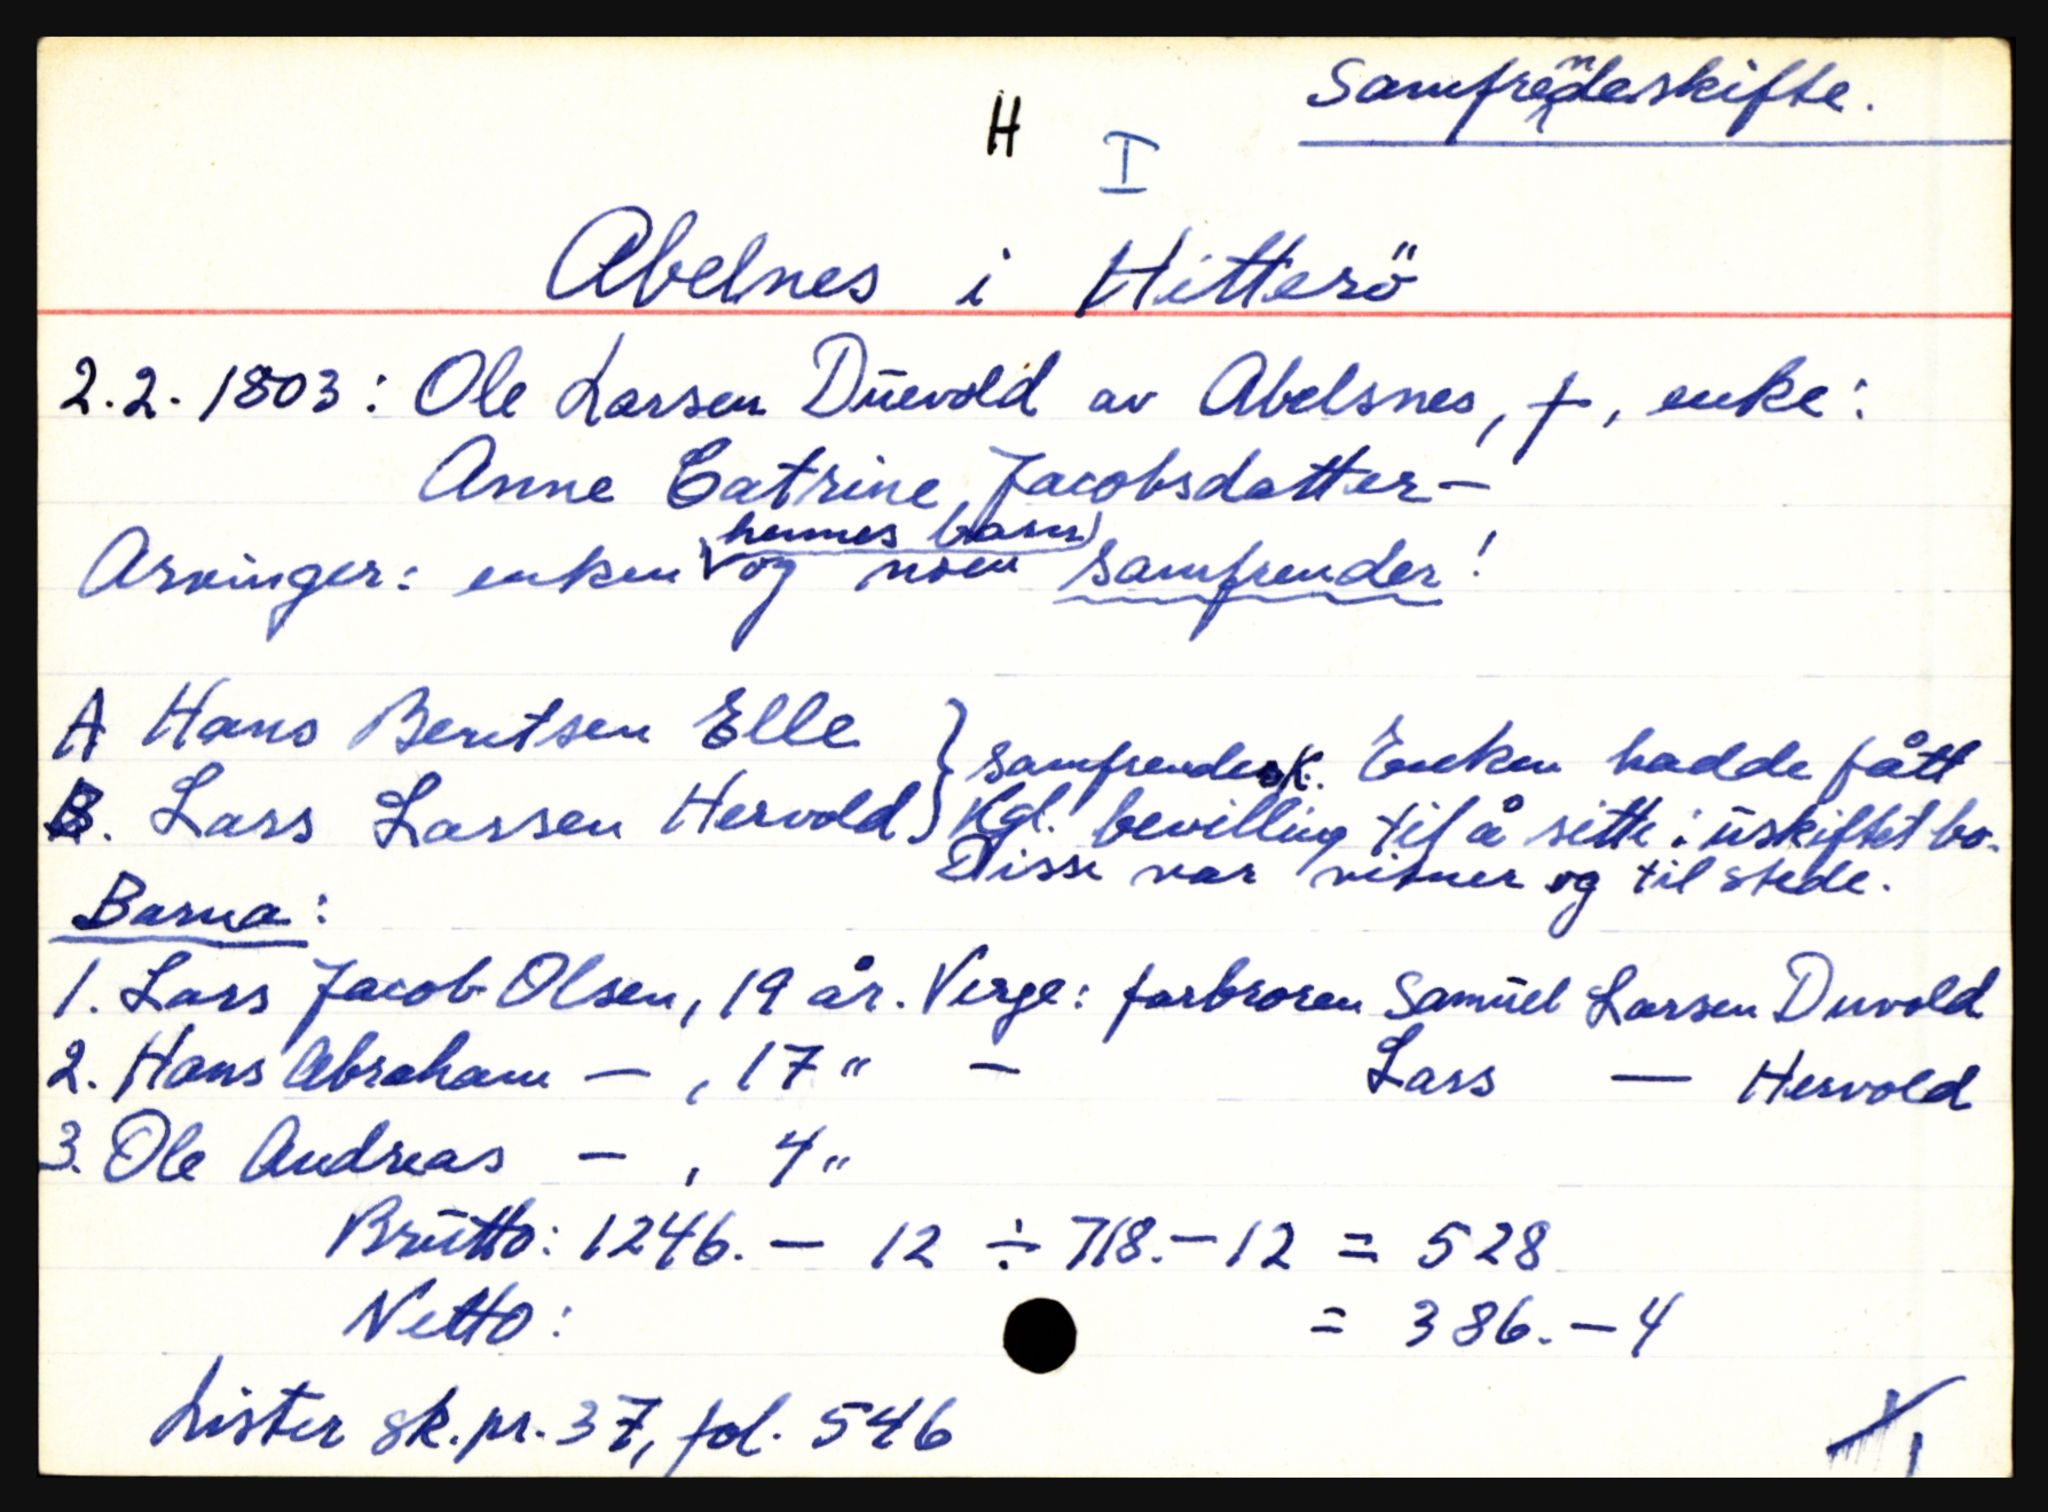 Samfrendeskifte.
H
I
Abelnes i Hitterö
2.2. 1803: Ole Larsen Duevold av Abelsnes, †, enke:
Anne Catrine Jacobsdatter –
hennes barn
Arvinger: enken og noen samfrender!
A Hans Berntsen Elle
B. Lars Larsen Hervold
samfrendesk. Enken hadde fått
Kgl. bevilling til å sitte i uskiftet bo.
Disse var vitner og til stede.
Barna:
1. Lars Jacob Olsen, 19 år. Verge: farbroren Samuel Larsen Duvold
2. Hans Abraham – , 17 " – Lars — Hervold
3. Ole Andreas – , 4 "
Brutto: 1246. – 12 ÷ 718. – 12 = 528
Netto: = 386. – 4
Lister sk.pr. 37, fol. 546